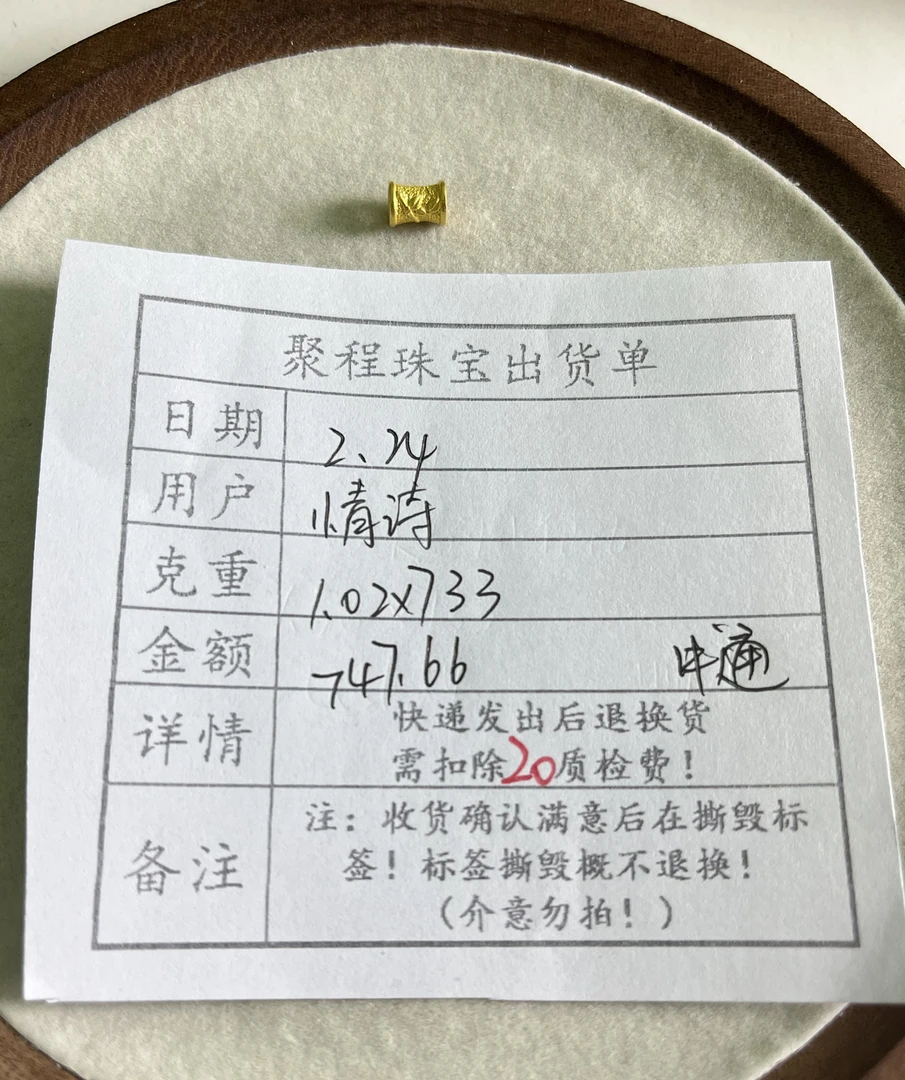 聚程珠宝出货单
日期 2.24
用户 情诗
克重 1.02x733
金额 747.66 中通
详情 快递发出后退换货
需扣除20质检费！
备注 注：收货确认满意后在撕毁标
签！标签撕毁概不退换！
（介意勿拍！）